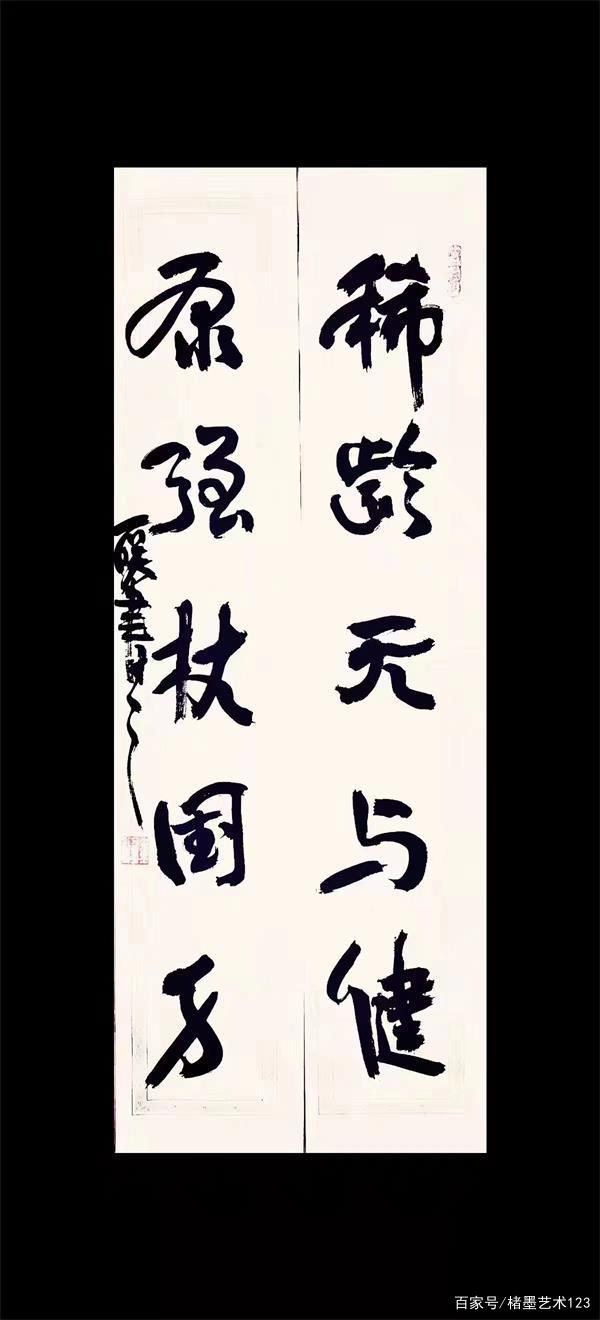 稀龄天与健
康强杖国方
百家号/楮墨艺术123